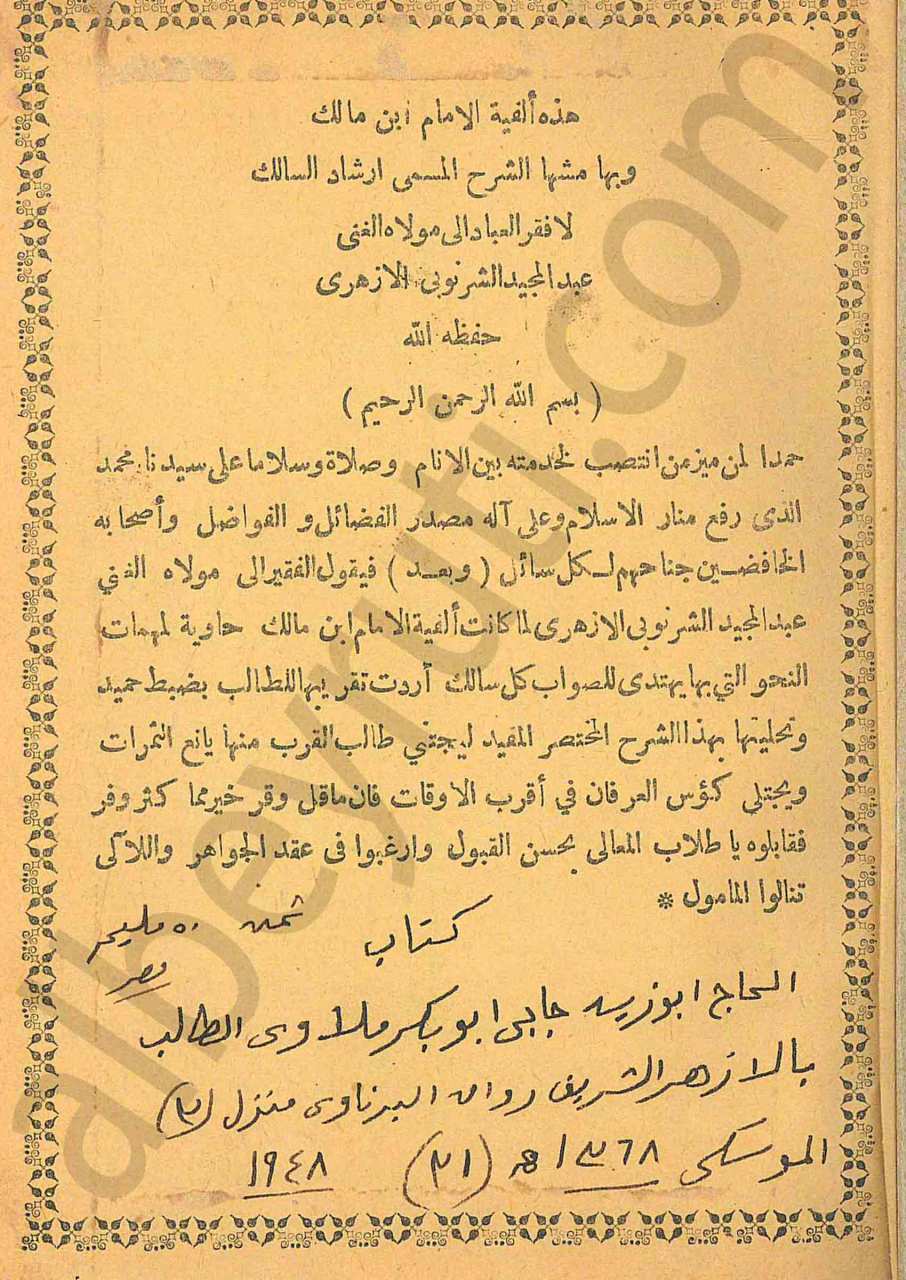 هذه ألفية الامام ابن مالك
وبهامشها الشرح المسمى ارشاد السالك
لافقر العباد الى مولاه الغنى
عبد المجيد الشرنوبى الازهرى
حفظه الله
( بسم الله الرحمن الرحيم )
حمدا لمن ميز من انتصب لخدمته بين الانام وصلاة وسلاما على سيدنا محمد
الذى رفع منار الاسلام وعلى آله مصدر الفضائل و الفواضل وأصحابه
الخافضين جناحهم لكل سائل ( وبعد ) فيقول الفقير الى مولاه الغني
عبد المجيد الشرنوبى الازهرى لما كانت ألفية الامام ابن مالك حاوية لمهمات
النحو التي بها يهتدى للصواب كل سالك أردت تقريبها للطالب بضبط حميد
وتحليتها بهذا الشرح المختصر المفيد ليجتني طالب القرب منها يانع الثمرات
ويجتلي كؤس العرفان في أقرب الاوقات فان ماقل وقر خير مما كثر وفر
فقابلوه يا طلاب المعالى بحسن القبول وارغبوا فى عقد الجواهر واللآلى
تنالوا المامول *
كتاب
ثمنه ٥٠ مليم
مصر
الحاج ابو زيد حاجى ابو بكر ملاوى الطالب
بالازهر الشريف رواق البرناوى منزل (٣)
الموسكى ١٣٦٨ هـ (٣١) ١٩٤٨
albeyruti.com